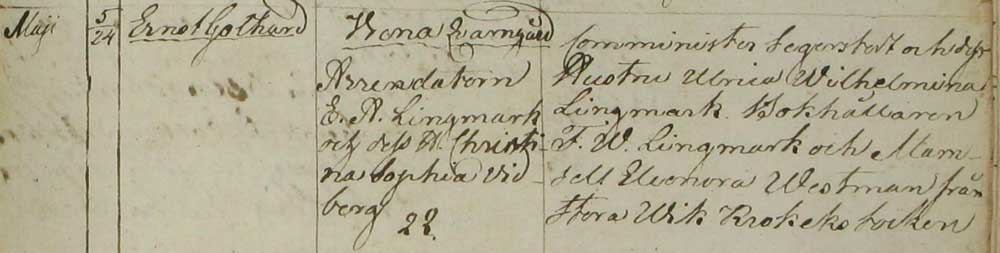 Maji 5/24 Ernst Gothard
Wena Qvarngård
Arrendatorn
E. A. Lingmark
och dess H. Christi-
na Sophia Vid-
berg
22.
Comminister Segerstedt och dess
Hustru Ulrica Wilhelmina
Lingmark. Bokhållaren
F. W. Lingmark och Mam-
sell Eleonora Westman från
Stora Wik Krokeks socken